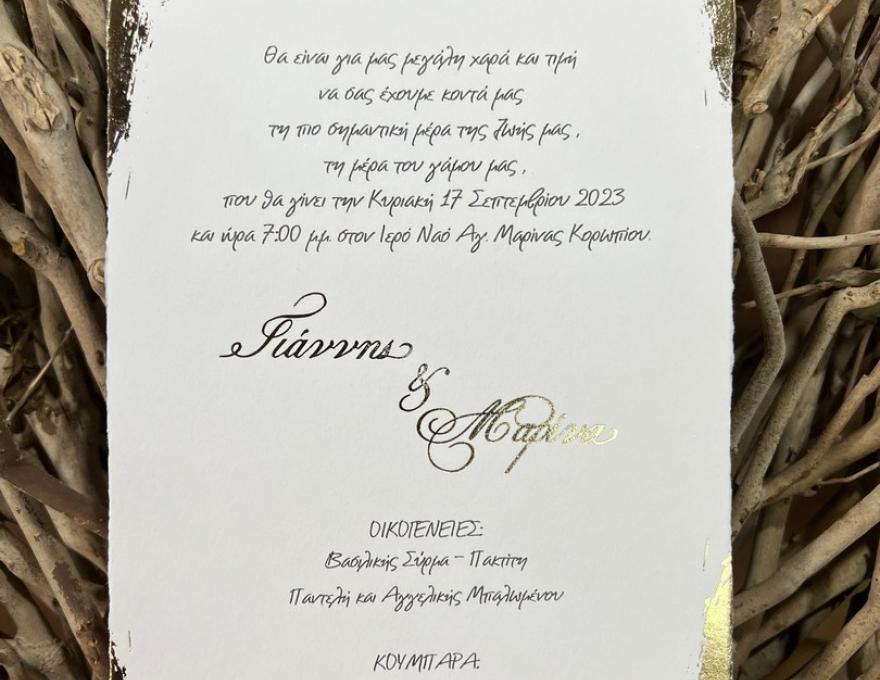 Θα είναι για μας μεγάλη χαρά και τιμή
να σας έχουμε κοντά μας
τη πιο σημαντική μέρα της ζωής μας,
τη μέρα του γάμου μας,
που θα γίνει την Κυριακή 17 Σεπτεμβρίου 2023
και ώρα 7:00 μμ. στον Ιερό Ναό Αγ. Μαρίνας Κορωπίου.
Γιάννης
&
Μαρίνα
ΟΙΚΟΓΕΝΕΙΕΣ:
Βασιλικής Σύρμα - Πακτίτη
Παντελή και Αγγελικής Μπαλωμένου
ΚΟΥΜΠΑΡΑ: